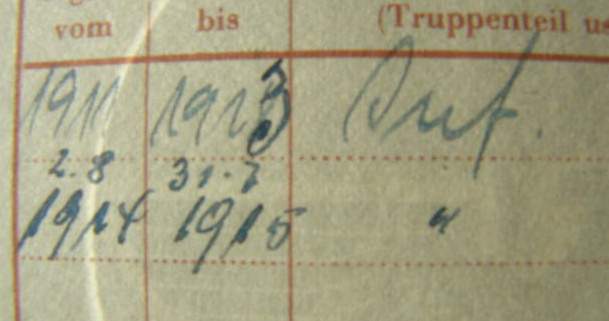 vom bis (Truppenteil us
1911 1913 Inf.
2.8 31.7
1914 1915 "